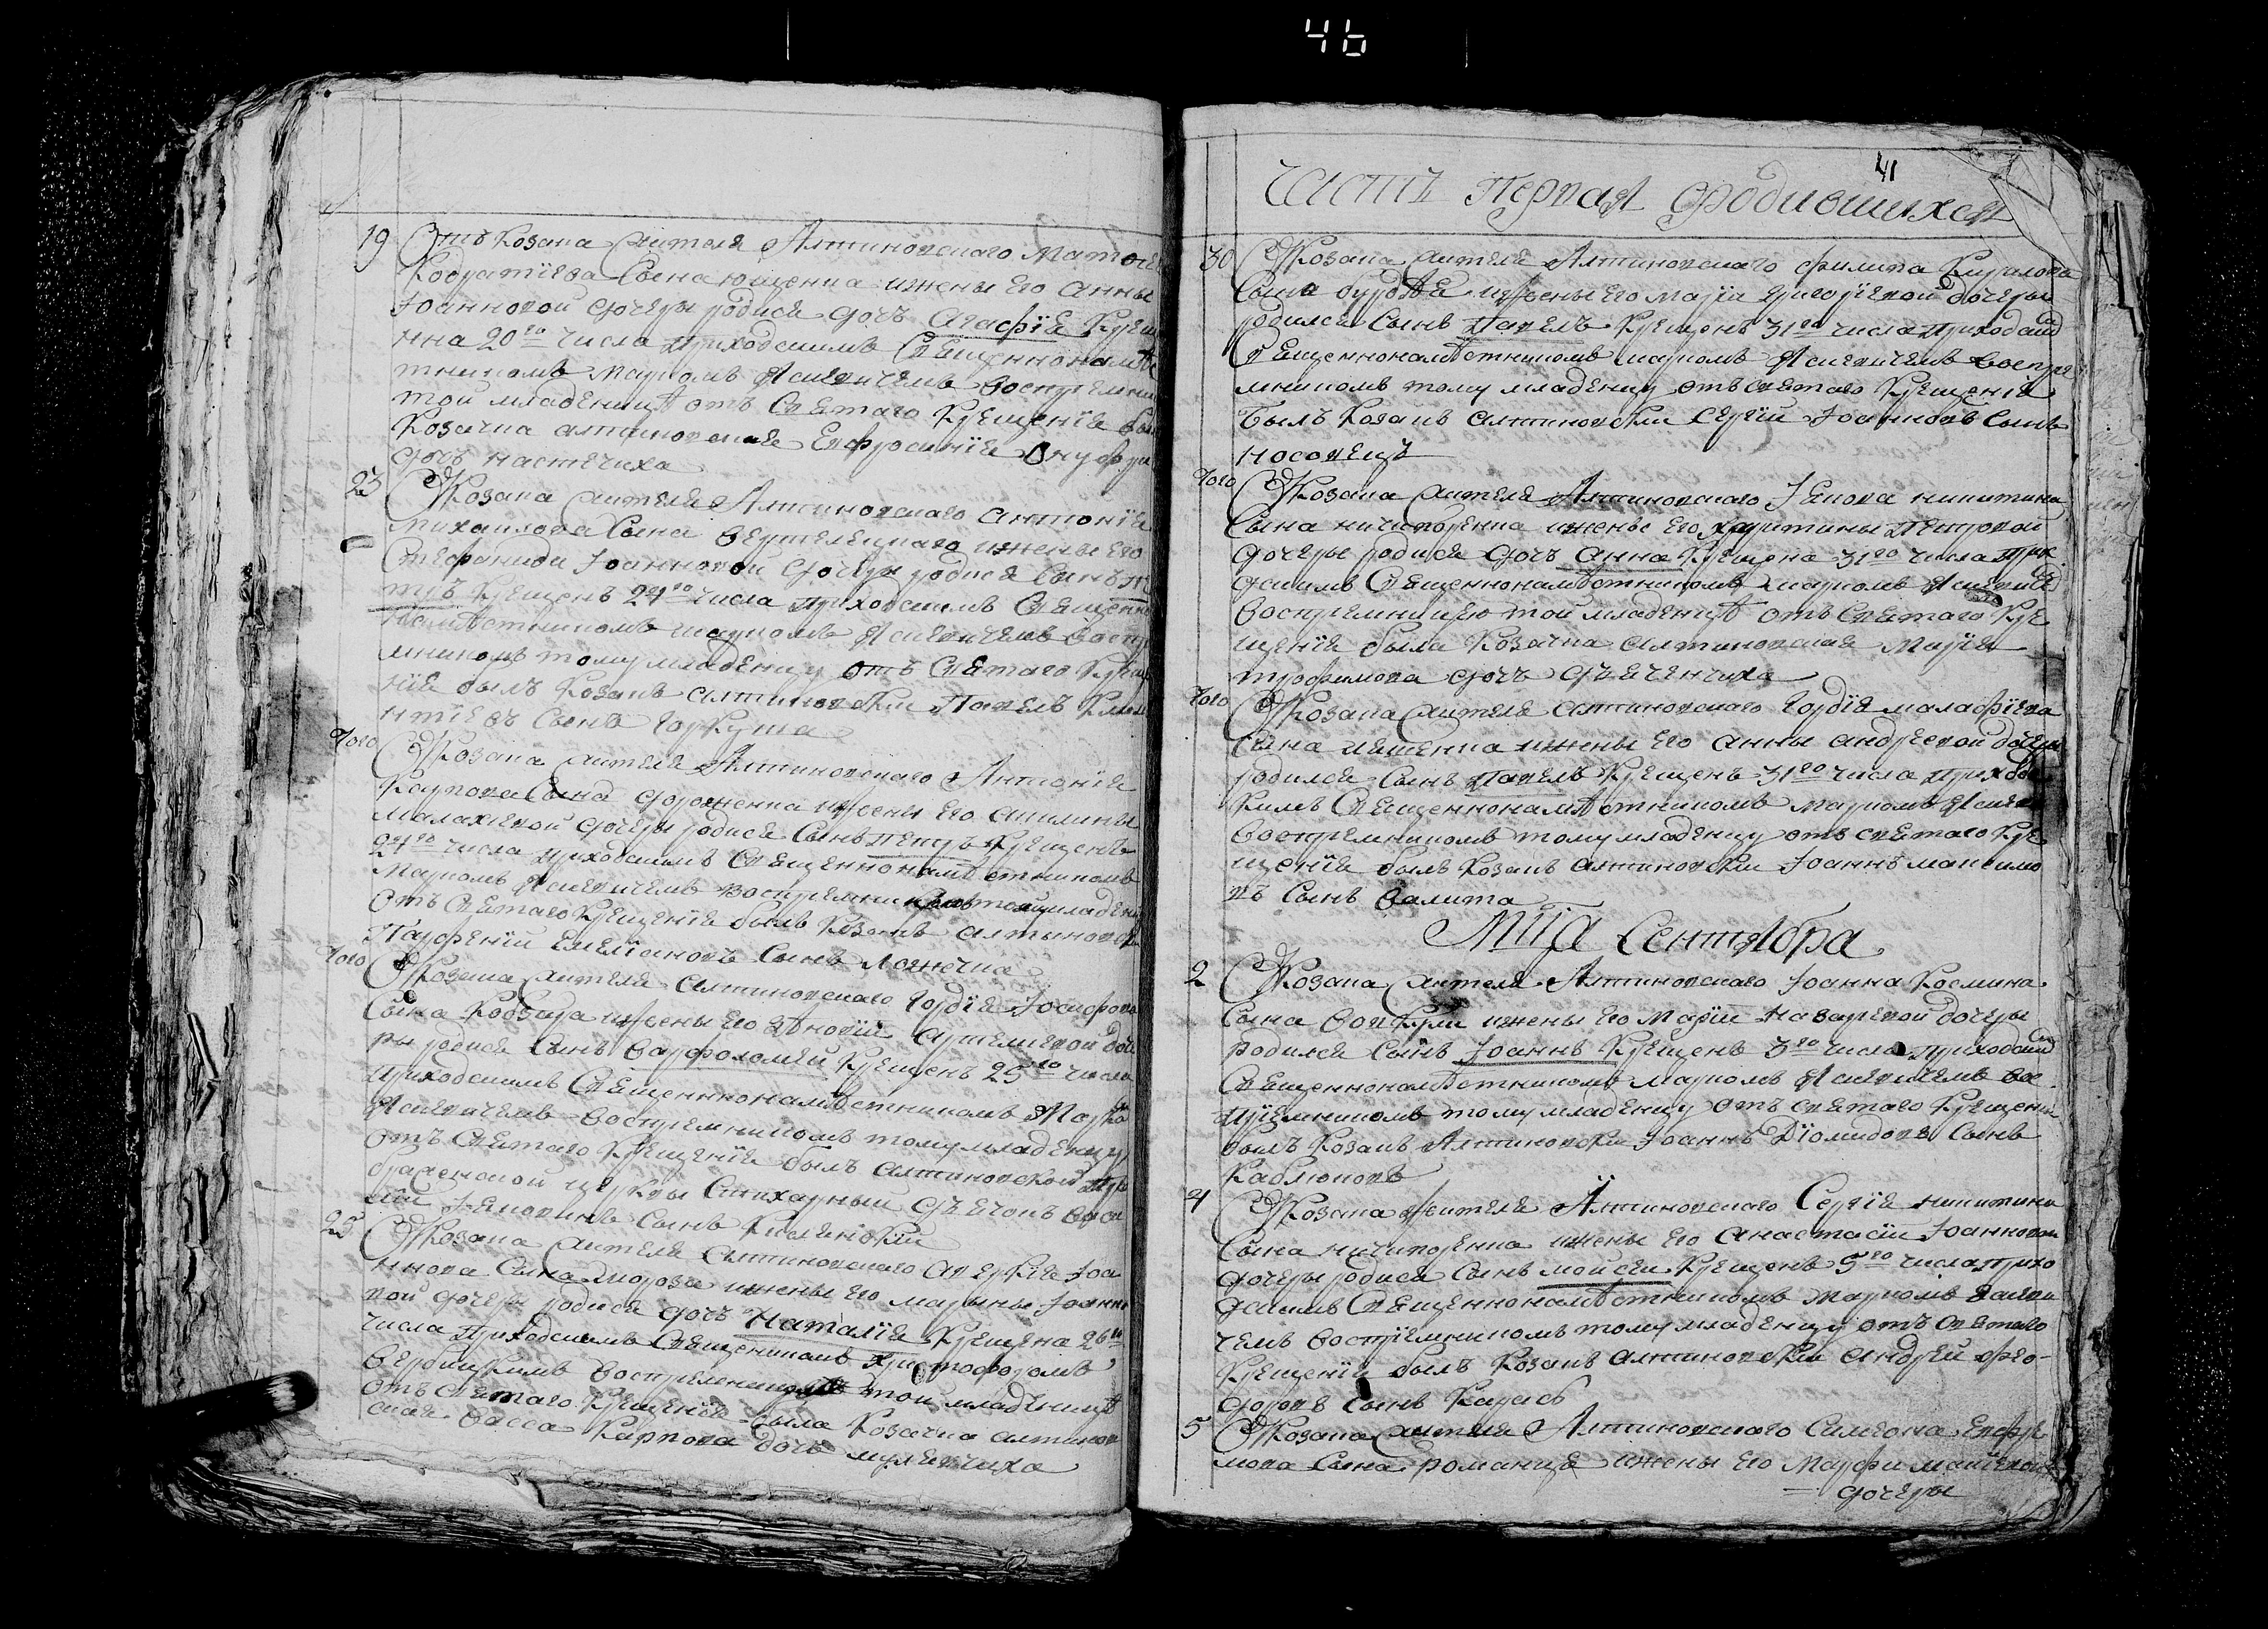 46
19 Отъ Козака жителя Алтиновского Матөе
Кодратїева Сына ющенка и жены Его Анны
Іоанновой дочеры родися дочъ Агафїя Креще
нна 20го числа приходскимъ Священнонамѣс
тникомъ Маркомъ Яснѣвичемъ воспрѣемни
той младеницѣ отъ Святаго Крещенїя был
Козачка алтиновская Евфросинїя Онуфри
дочъ настечиха
23 Ѿ Козака жителя Алтиновского Антонїя
михаилова Сына вертелецкаго и жены Его
Стефаниди Іоанновой дочеры родися Сынъ пе
тръ Крещенъ 24го числа приходскимъ Священно
намѣстникомъ маркомъ Яснѣвичемъ воспр
мникомъ тому младенцу отъ Святаго Креще
нїя былъ Козакъ алтиновскїи Павелъ Клим
нтїевъ Сынъ Горкуша
Того Ѿ Козака жителя Алтиновского Антонїя
Карпова Сына дороженка и жены Его Акилины
Малахиевой дочеры родися Сынъ петръ Крещенъ
24го числа приходскимъ Священнонамѣстникомъ
Маркомъ Яснѣвичемъ воспремникомъ тому младен
отъ Святаго Крещенїя былъ Козакъ алтыновск
Парфенїи Емелїановъ Сынъ
Того Ѿ Козака жителя Алтиновского Гордїя Іосифова
Сына Кобзара и жены Его Евдокїи Артемиевой доче
ры родися Сынъ Варфоломей Крещенъ 25го числа
приходскимъ Священнонамѣстникомъ Марко
Яснѣвичемъ воспремникомъ тому младенцу
отъ Святаго Крещенїя былъ алтиновской пре
ображенской церкви Стихарный дъячокъ Васи
лїи Іяковинъ Сынъ
25 Ѿ Козака жителя Алтиновского Аверкїя Іоа
ннова Сына мороза и жены Его марыны Іоанно
вой дочеры родися дочъ Наталїя Крещена 26го
числа приходскимъ Священикомъ Христофоромъ
вербицкимъ воспремницею той младеницѣ
отъ святаго Крещенїя была Козачка алтинов
ская Васса Карпова дочъ
41
Часть первая ѡ родившихся
30 Ѿ Козака жителя Алтиновского Филипа Кирилова
Сына и жены Его Марїи Григорїевой дочеры
родился Сынъ Павелъ Крещенъ 31го числа приходски
Священнонамѣстникомъ маркомъ Яснѣвичемъ воспре
мникомъ тому младенцу отъ святаго Крещенїя
былъ Козакъ алтиновскїи Сергїи Іоанновъ Сынъ
носовецъ
Того Ѿ Козака жителя Алтиновского Іякова никитина
Сына ничипоренка и жены Его Харитины Петровой
дочеры родися дочъ анна Крещена 31го числа прихо
дскимъ Священнонамѣстникомъ маркомъ Яснѣвиче
воспремницею той младеницѣ отъ Святаго Кре
щенїя была Козачка алтиновская Марїя
трофимова дочъ дъяченчиха
Того Ѿ Козака жителя алтиновского Гордїя малафїева
Сына ивженка и жены Его анны андреевой дочеры
родился Сынъ Павелъ Крещенъ 31го числа приходс
кимъ Священнонамѣстникомъ маркомъ Яснѣви
воспремникомъ тому младенцу отъ святаго Кре
щенїя былъ Козакъ алтиновскїи Іоаннъ максимо
въ Сынъ Калита
Мца Сентября
2 Ѿ Козака жителя Алтиновского Іоанна Космина
Сына и жены Его Марїи назарїевой дочеры
родился Сынъ Іоаннъ Крещенъ 3го числа приходски
Священнонамѣстникомъ маркомъ Яснѣвичемъ вос
прїемникомъ тому младенцу отъ святаго Крещенїя
былъ Козакъ Алтиновскїи Іоаннъ Дїомидовъ Сынъ
Каблюковъ
4 Ѿ Козака жителя Алтиновского Сергїя никитина
Сына ничипоренка и жены Его анастасїи Іоанновой
дочеры родися Сынъ мойсеи Крещенъ 5го числа прихо
дскимъ Священнонамѣстникомъ маркомъ Яснѣви
чемъ воспрїемникомъ тому младенцу отъ святаго
Крещенїя былъ Козакъ алтиновскїи андреи Фео-
доровъ Сынъ Карасъ
5 Ѿ Козака жителя Алтиновского Симеона Ефре
мова Сына романця и жены Его Марфи матїевой
дочеры